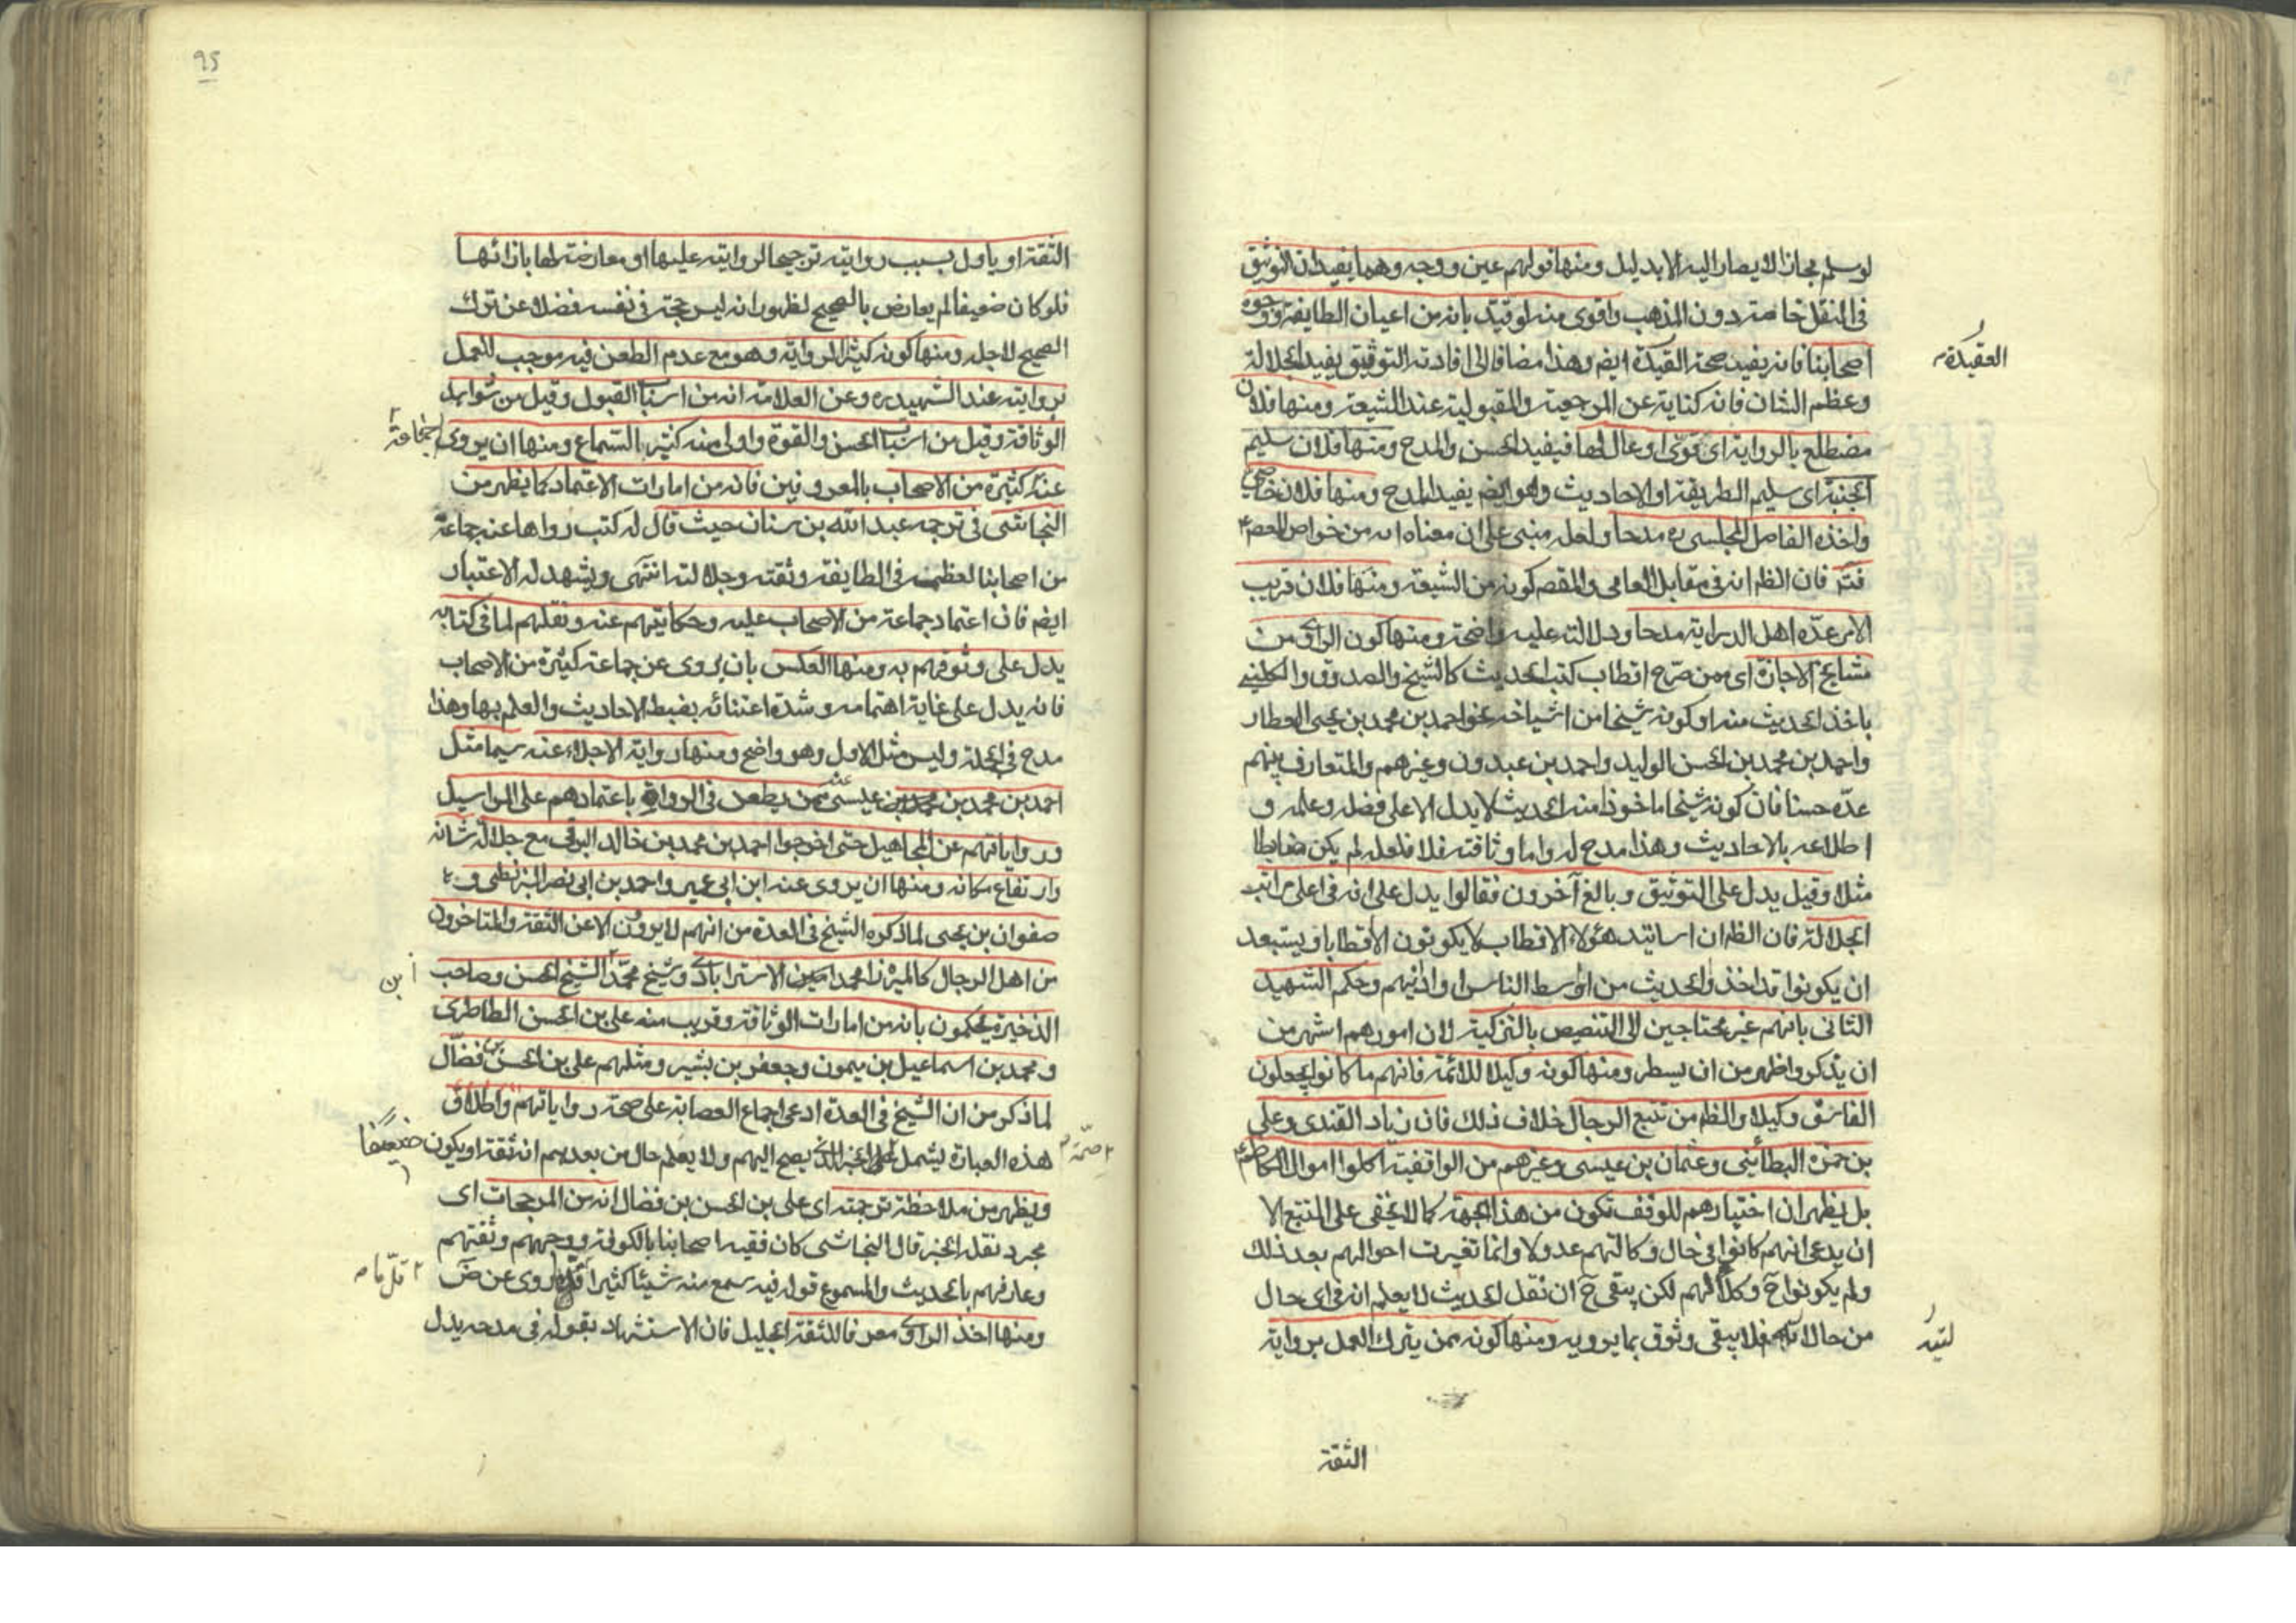 لو سلم مجاز لا يصار اليه الا بدليل ومنها قولهم عين ووجه وهما يفيدان التوثيق
في النقل خاصة دون المذهب واقوى منه لو قيد بانه من اعيان الطايفة ووجوه
اصحابنا فانه يفيد صحة القيدة ايضم وهذا مضافا الى افادته التوثيق يفيد الجلالة
العقيدة
وعظم الشان فانه كناية عن المرجعية والمقبولية عند الشيعة ومنها فلان
مضطلع بالرواية اى قوى او عال لها فيفيد الحسن والمدح ومنها فلان سليم
الجنبة اى سليم الطريقة او الاحاديث وهو ايضم يفيد المدح ومنها فلان خاصى
واخذه الفاضل المجلسى ره مدحا ولعله مبنى على ان معناه انه من خواص المعصم
فان الظم انه في مقابل العامى والمقصم كونه من الشيعة ومنها فلان قريب
الامر عده اهل الدراية مدحا ودلالته عليه واضحة ومنها كون الراوى من
مشايخ الاجازة اى ممن صرح اقطاب كتب الحديث كالشيخ والصدوق والكلينى
باخذ الحديث منه او كونه شيخا من اشياخه نحو احمد بن محمد بن يحيى العطار
واحمد بن محمد بن الحسن الوليد واحمد بن عبدون وغيرهم والمتعارف بينهم
عده حسنا فان كونه شيخا ماخوذا منه الحديث لا يدل الا على فضله وعلمه و
اطلاعه بالاحاديث وهذا مدح له واما وثاقته فلا فلعله لم يكن ضابطا
مثلا وقيل يدل على التوثيق وبالغ آخرون فقالوا يدل على انه في اعلى مراتب
الجلالة فان الظم ان اساتيد هؤلاء الاقطاب لا يكونون الا قطابا ويستبعد
ان يكونوا قد اخذوا الحديث من اوسط الناس او ادانيهم وحكم الشهيد
الثانى بانهم غير محتاجين الى التنصيص بالتزكية لان امورهم اشهر من
ان يذكر واظهر من ان يسطر ومنها كونه وكيلا للائمة فانهم ما كانوا يجعلون
الفاسق وكيلا والظم من تتبع الرجال خلاف ذلك فان زياد القندى وعلى
بن حمزة البطائنى وعثمان بن عيسى وغيرهم من الواقفية اكلوا اموال الكاظم
بل يظهر ان اختيارهم للوقف تكون من هذا الجهة كما لا يخفى على المتتبع الا
ان يدعى انهم كانوا في حال وكالتهم عدولا وانما تغيرت احوالهم بعد ذلك
ولم يكونوا ح وكلاء لهم لكن يبقى ح ان نقل الحديث لا يعلم انه في اى حال
من حال فلا يبقى وثوق بما يرويه ومنها كونه ممن يترك العمل برواية
الثقة
95
الثقة او ياول بسبب روايته ترجيحا لروايته عليها او معارضته لها بازائها
فلو كان ضعيفا لم يعارض بالصحيح لظهور انه ليس حجة في نفسه فضلا عن ترك
الصحيح لاجله ومنها كونه كثير الرواية وهو مع عدم الطعن فيه موجب للعمل
بروايته عند الشهيد ره وعن العلامة انه من اسباب القبول وقيل من شواهد
الوثاقة وقيل من اسباب الحسن والقوة واولى منه كثير السماع ومنها ان يروى
جماعة
عنه كثيرة من الاصحاب بالمعروفين فانه من امارات الاعتماد كما يظهر من
النجاشى في ترجمة عبد الله بن سنان حيث قال له كتب رواها عنه جماعة
من اصحابنا لعظمه في الطايفة وثقته وجلالته انتهى ويشهد له الاعتبار
ايضم فان اعتماد جماعة من الاصحاب عليه وحكايتهم عنه ونقلهم لما في كتابه
يدل على وثوقهم به ومنها العكس بان يروى عن جماعة كثيرة من الاصحاب
فانه يدل على غاية اهتمامه وشدة اعتنائه بضبط الاحاديث والعلم بها وهذا
مدح في الجملة وليس مثل الاول وهو واضح ومنها رواية الاجلاء عنه سيما مثل
احمد بن محمد بن عيسى ممن يطعن في الرواة باعتمادهم على المراسيل
ورواياتهم عن المجاهيل حتى اخرجوا احمد بن محمد بن خالد البرقى مع جلالة شانه
وارتفاع مكانه ومنها ان يروى عنه ابن ابى عمير واحمد بن ابى نصر البزنطى و
صفوان بن يحيى لما ذكره الشيخ في العدة من انهم لا يروون الا عن الثقة والمتاخرون
من اهل الرجال كالميرزا محمد امين الاسترابادى وشيخ محمد الشيخ الحسن وصاحب
ابن
الذخيرة يحكمون بانه من امارات الوثاقة وقريب منه على بن الحسن الطاطرى
ومحمد بن اسماعيل بن ميمون وجعفر بن بشير ومثلهم على بن الحسن بن فضال
لما ذكر من ان الشيخ في العدة ادعى اجماع العصابة على صحة رواياتهم واطلاق
هذه العبارة يشمل يصح اليهم ولا يعلم حال من بعدهم انه ثقة او يكون ضعيفا
ويظهر من ملاحظة ترجمته اى على بن الحسن بن فضال انه من المرجحات اى
مجرد نقله الخبر قال النجاشى كان فقيه اصحابنا بالكوفة ووجههم وثقتهم
وعارفهم بالحديث والمسموع قوله فيه سمع منه شيئا كثيرا روى عن ض
قل ما
ومنها اخذ الراوى معرفا للثقة الجليل فان الاستشهاد بقوله في مدحه يدل